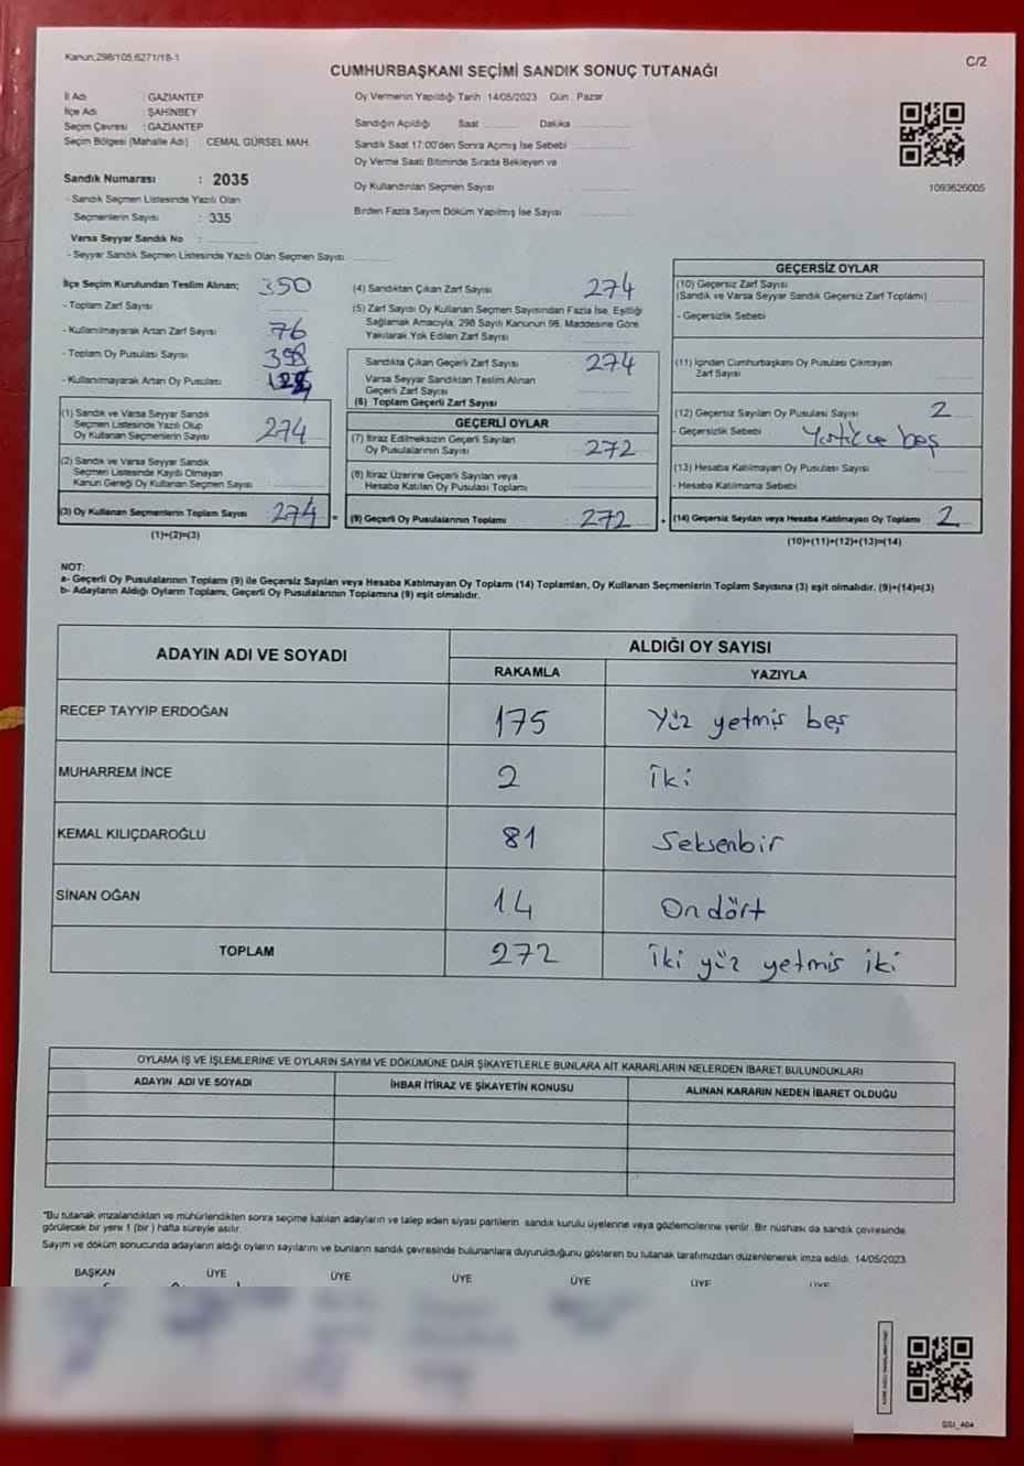 Kanun:298/105,6271/18-1
C/2
CUMHURBAŞKANI SEÇİMİ SANDIK SONUÇ TUTANAĞI
İl Adı : GAZİANTEP
İlçe Adı : ŞAHİNBEY
Seçim Çevresi : GAZİANTEP
Seçim Bölgesi (Mahalle Adı) CEMAL GÜRSEL MAH.
Oy Vermenin Yapıldığı Tarih : 14/05/2023 Gün : Pazar
Sandığın Açıldığı Saat Dakika
Sandık Saat 17:00'den Sonra Açılmış İse Sebebi
Oy Verme Saati Bitiminde Sırada Bekleyen ve
Oy Kullandırılan Seçmen Sayısı
Birden Fazla Sayım Döküm Yapılmış İse Sayısı
1093625005
Sandık Numarası : 2035
- Sandık Seçmen Listesinde Yazılı Olan
Seçmenlerin Sayısı : 335
Varsa Seyyar Sandık No :
- Seyyar Sandık Seçmen Listesinde Yazılı Olan Seçmen Sayısı
İlçe Seçim Kurulundan Teslim Alınan; 350
- Toplam Zarf Sayısı
- Kullanılmayarak Artan Zarf Sayısı 76
- Toplam Oy Pusulası Sayısı
- Kullanılmayarak Artan Oy Pusulası
(1) Sandık ve Varsa Seyyar Sandık
Seçmen Listesinde Yazılı Olup
Oy Kullanan Seçmenlerin Sayısı 274
(2) Sandık ve Varsa Seyyar Sandık
Seçmen Listesinde Kayıtlı Olmayan
Kanun Gereği Oy Kullanan Seçmen Sayısı
(3) Oy Kullanan Seçmenlerin Toplam Sayısı 274
(1)+(2)=(3)
(4) Sandıktan Çıkan Zarf Sayısı 274
(5) Zarf Sayısı Oy Kullanan Seçmen Sayısından Fazla İse, Eşitliği
Sağlamak Amacıyla, 298 Sayılı Kanunun 98. Maddesine Göre
Yakılarak Yok Edilen Zarf Sayısı
Sandıkta Çıkan Geçerli Zarf Sayısı 274
Varsa Seyyar Sandıktan Teslim Alınan
Geçerli Zarf Sayısı
(6) Toplam Geçerli Zarf Sayısı
GEÇERLİ OYLAR
(7) İtiraz Edilmeksizin Geçerli Sayılan
Oy Pusulalarının Sayısı 272
(8) İtiraz Üzerine Geçerli Sayılan veya
Hesaba Katılan Oy Pusulası Toplamı
= (9) Geçerli Oy Pusulalarının Toplamı 272 +
GEÇERSİZ OYLAR
(10) Geçersiz Zarf Sayısı
(Sandık ve Varsa Seyyar Sandık Geçersiz Zarf Toplamı)
- Geçersizlik Sebebi
(11) İçinden Cumhurbaşkanı Oy Pusulası Çıkmayan
Zarf Sayısı
(12) Geçersiz Sayılan Oy Pusulası Sayısı 2
- Geçersizlik Sebebi
(13) Hesaba Katılmayan Oy Pusulası Sayısı
- Hesaba Katılmama Sebebi
(14) Geçersiz Sayılan veya Hesaba Katılmayan Oy Toplamı 2
(10)+(11)+(12)+(13)=(14)
NOT:
a- Geçerli Oy Pusulalarının Toplamı (9) ile Geçersiz Sayılan veya Hesaba Katılmayan Oy Toplamı (14) Toplamları, Oy Kullanan Seçmenlerin Toplam Sayısına (3) eşit olmalıdır. (9)+(14)=(3)
b- Adayların Aldığı Oyların Toplamı, Geçerli Oy Pusulalarının Toplamına (9) eşit olmalıdır.
ADAYIN ADI VE SOYADI
ALDIĞI OY SAYISI
RAKAMLA YAZIYLA
RECEP TAYYİP ERDOĞAN 175 Yüz yetmiş beş
MUHARREM İNCE 2 İki
KEMAL KILIÇDAROĞLU 81 Seksenbir
SİNAN OĞAN 14 On dört
TOPLAM 272 İki yüz yetmis iki
OYLAMA İŞ VE İŞLEMLERİNE VE OYLARIN SAYIM VE DÖKÜMÜNE DAİR ŞİKAYETLERLE BUNLARA AİT KARARLARIN NELERDEN İBARET BULUNDUKLARI
ADAYIN ADI VE SOYADI İHBAR İTİRAZ VE ŞİKAYETİN KONUSU ALINAN KARARIN NEDEN İBARET OLDUĞU
"Bu tutanak imzalandıktan ve mühürlendikten sonra seçime katılan adayların ve talep eden siyasi partilerin sandık kurulu üyelerine veya gözlemcilerine verilir. Bir nüshası da sandık çevresinde
görülecek bir yere 1 (bir) hafta süreyle asılır.
Sayım ve döküm sonucunda adayların aldığı oyların sayılarını ve bunların sandık çevresinde bulunanlara duyurulduğunu gösteren bu tutanak tarafımızdan düzenlenerek imza edildi. 14/05/2023
BAŞKAN ÜYE ÜYE ÜYE ÜYE ÜYE ÜYE